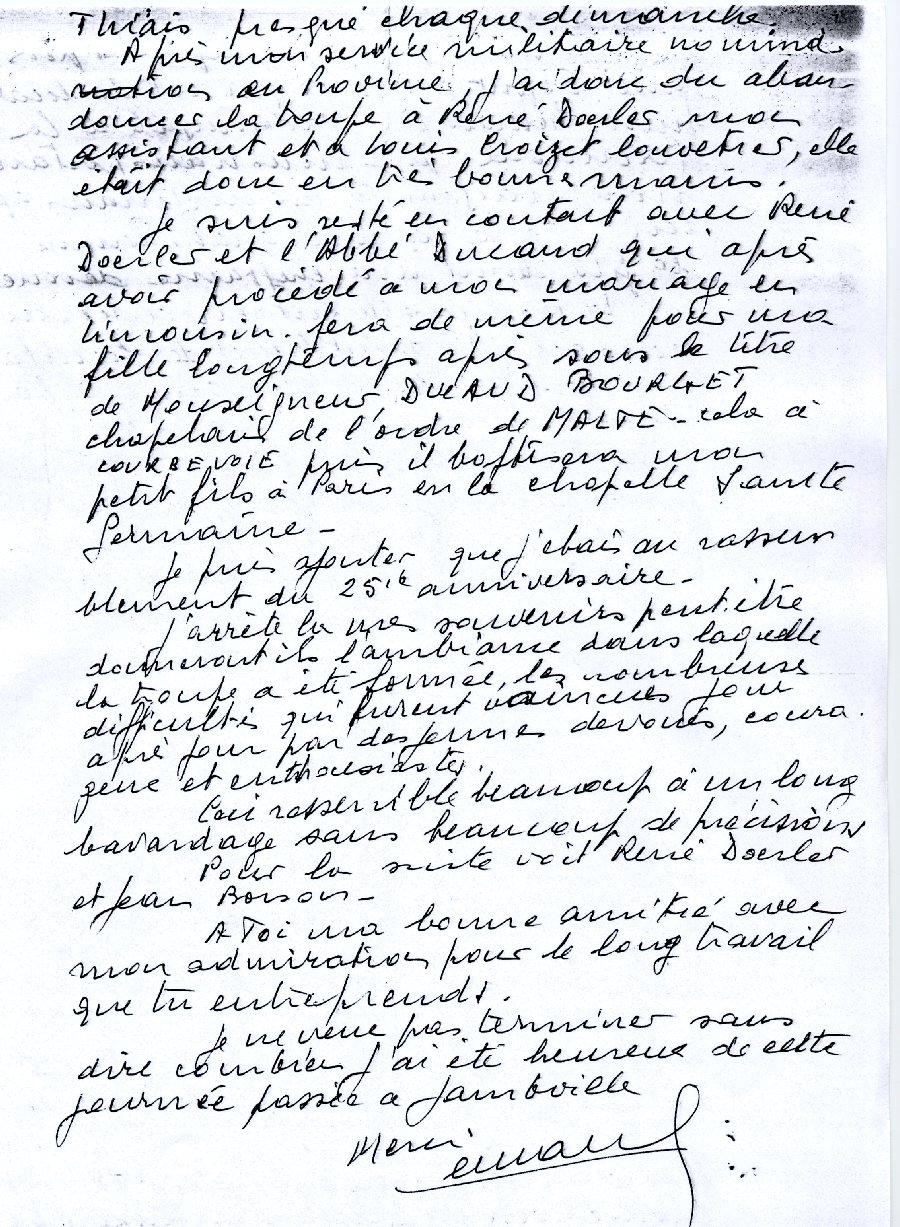 Thiais presque chaque dimanche.
Après mon service militaire nomina
en Province, j'ai donc du aban
donner la troupe à René Doerler mon
assistant et à Louis Croizet louvetier, elle
était donc en très bonne mains.
Je suis resté en contact avec René
Doerler et l'Abbé Ducaud qui après
avoir procédé a mon mariage en
limousin. fera de même pour ma
fille longtemps après sous le titre
de Monseigneur DUCAUD BOURGET
chapelain de l'ordre de MALTE - cela à
COURBEVOIE puis il baptisera mon
petit fils à Paris en la chapelle Sainte
Germaine -
Je puis ajouter que j'étais au rassem
blement du 25ie anniversaire -
J'arrête la mes souvenirs peut être
donneront ils l'ambiance dans laquelle
la troupe a été formée, les nombreuses
difficultés qui furent vaincues jour
après jour par des jeunes dévoués, coura.
geux et enthousiastes.
Ceci ressemble beaucoup à un long
bavardage sans beaucoup de précisions
Pour la suite voit René Doerler
et Jean Bonson -
A Toi ma bonne amitié avec
mon admiration pour le long travail
que tu entreprends.
Je ne veux pas terminer sans
dire combien j'ai été heureux de cette
journée passée a Jambville
Merci